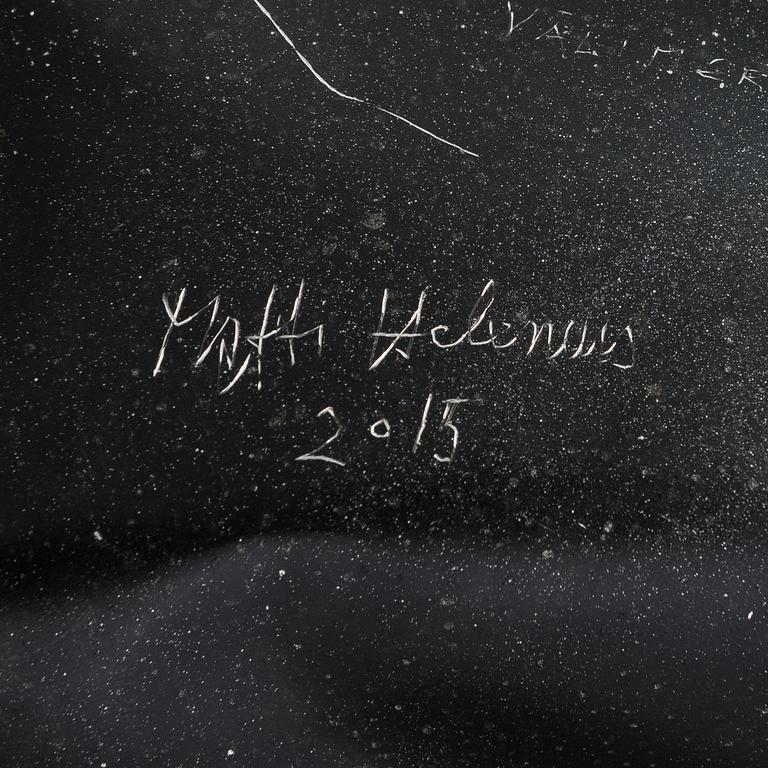 VALIMER
Matti Helenius
2015